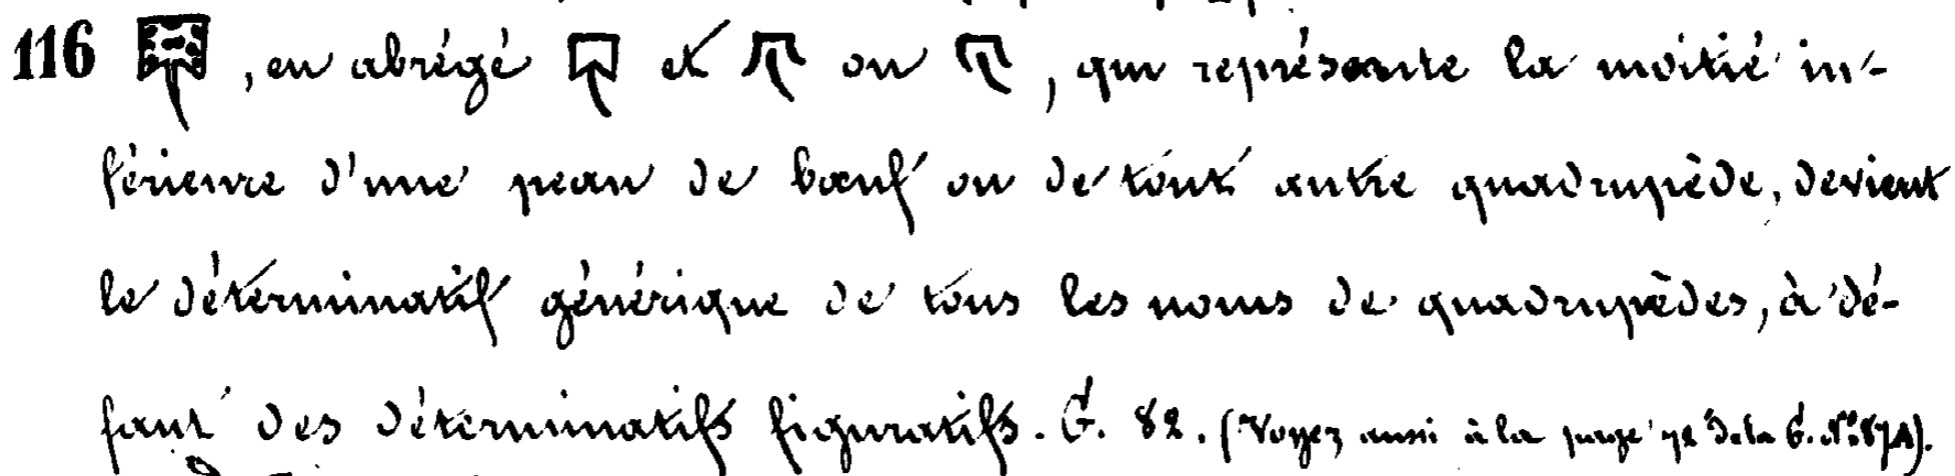 116 , en abrégé et ou , qui représente la moitié in-
férieure d'une peau de bœuf ou de tout autre quadrupède, devient
le déterminatif générique de tous les noms de quadrupèdes, à dé-
faut des déterminatifs figuratifs. G. 82. (Voyez aussi à la page 72 de la G. N° 87A).